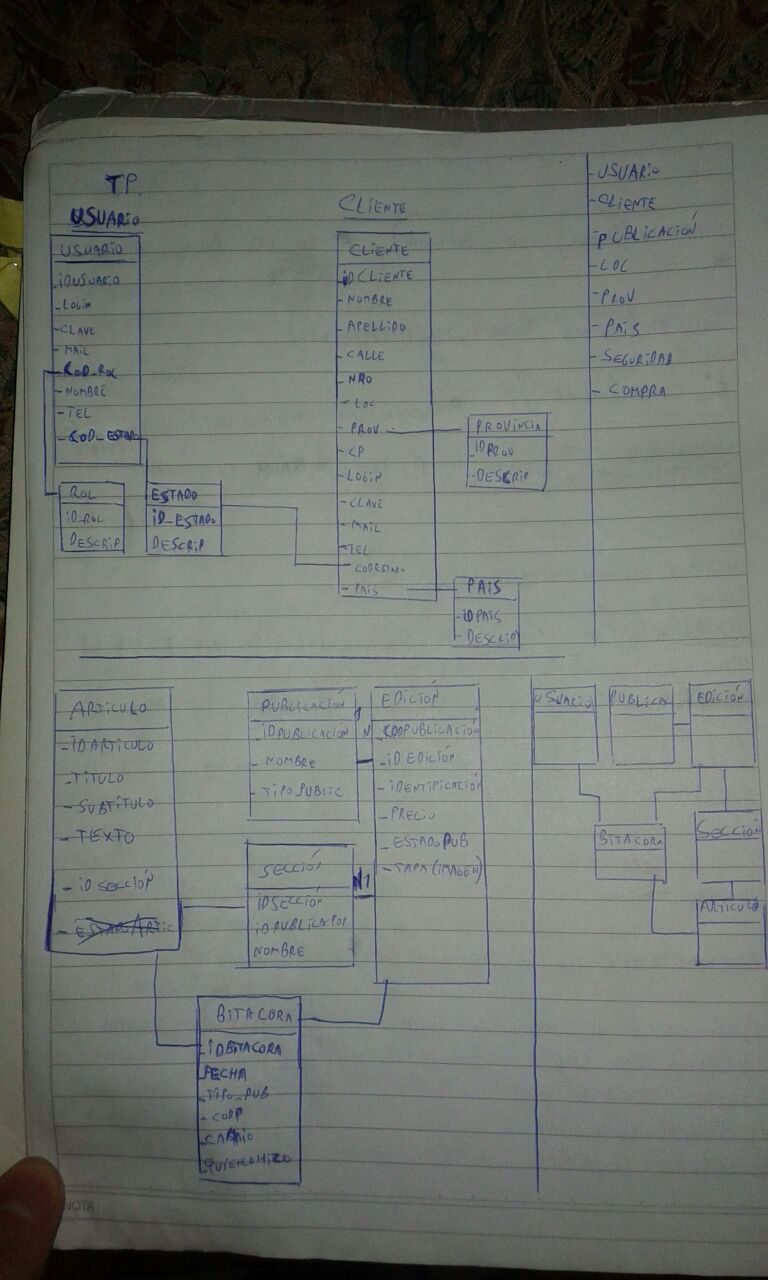 TP.
USUARIO
USUARIO
- IDUSUARIO
- LOGIN
- CLAVE
- MAIL
- COD_ROL
- NOMBRE
- TEL
- COD_ESTADO
ROL
ID_ROL
DESCRIP
ESTADO
ID_ESTADO
DESCRIP
CLIENTE
CLIENTE
IDCLIENTE
- NOMBRE
- APELLIDO
- CALLE
- NRO
- LOC
- PROV
- CP
- LOGIN
- CLAVE
- MAIL
- TEL
- CODESTADO
- PAIS
PROVINCIA
- IDPROV
- DESCRIP
PAIS
- IDPAIS
- DESCRIP
- USUARIO
- CLIENTE
- PUBLICACIÓN
- LOC
- PROV
- PAÍS
- SEGURIDAD
- COMPRA
ARTICULO
- IDARTICULO
- TÍTULO
- SUBTÍTULO
- TEXTO
- ID SECCIÓN
PUBLICACIÓN
- IDPUBLICACION
- NOMBRE
- TIPO PUBLIC
1
N
EDICIÓN
- CODPUBLICACIÓN
- ID EDICIÓN
- IDENTIFICACIÓN
- PRECIO
- ESTADO PUB
- TAPA (IMAGEN)
SECCIÓN
IDSECCIÓN
IDPUBLICACION
NOMBRE
N1
BITACORA
- IDBITACORA
- FECHA
- TIPO_PUB
- CODP
- CAMBIO
- QUIENLOHIZO
USUARIO
PUBLICA
EDICIÓN
BITACORA
SECCIÓN
ARTICULO
NOTA